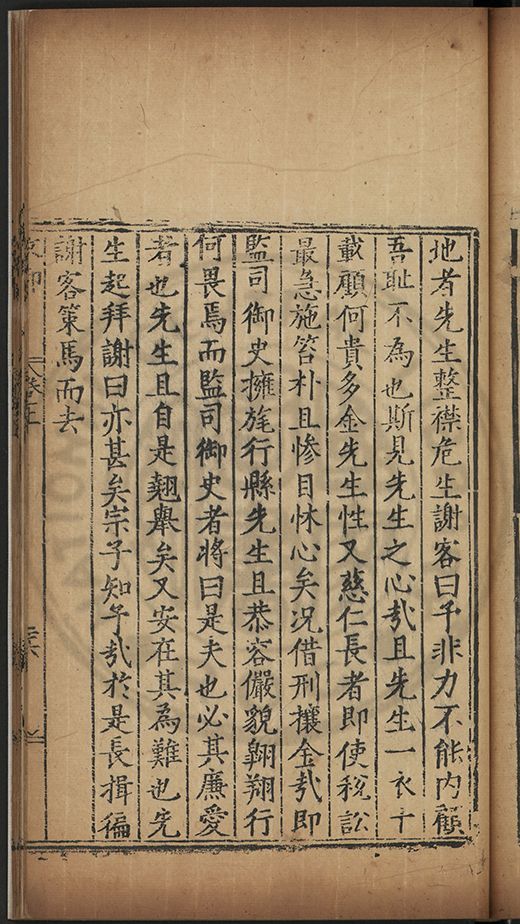 地者先生整襟危坐謝客曰予非力不能内顧
吾耻不為也斯見先生之心㢤且先生一衣十
載顧何貴多金先生性又慈仁長者即使税訟
最急施笞朴且慘目怵心矣況借刑攘金㢤即
監司御史擁旄行縣先生且恭容儼貌翱翔行
何畏焉而監司御史者將曰是夫也必其廉愛
者也先生且自是翹舉矣又安在其為難也先
生起拜謝曰亦甚矣宗子知予㢤於是長揖徧
謝客策馬而去